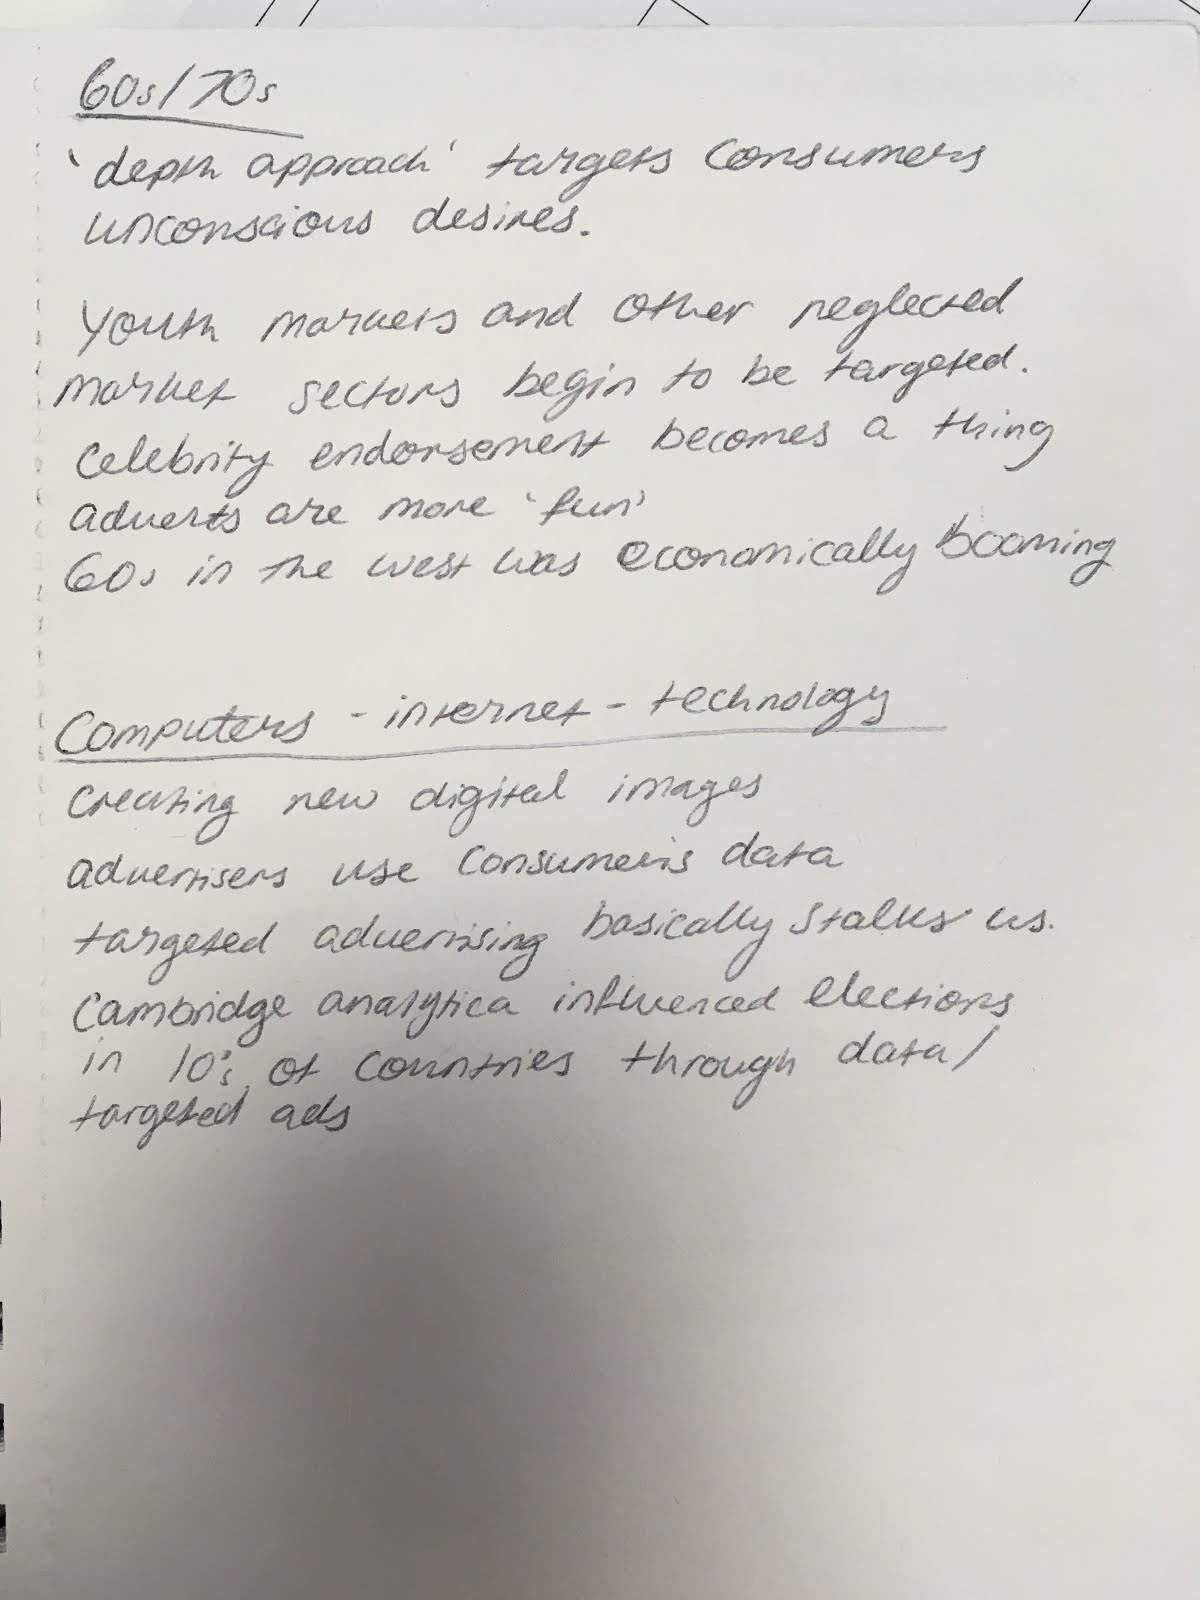 60s/70s
'depth approach' targets consumers
unconscious desires.
Youth markets and other neglected
market sectors begin to be targeted.
Celebrity endorsement becomes a thing
adverts are more 'fun'
60s in the west was economically booming
Computers - internet - technology
Creating new digital images
advertisers use consumer's data
targeted advertising basically stalks us.
Cambridge analytica influenced elections
in 10's of countries through data/
targeted ads